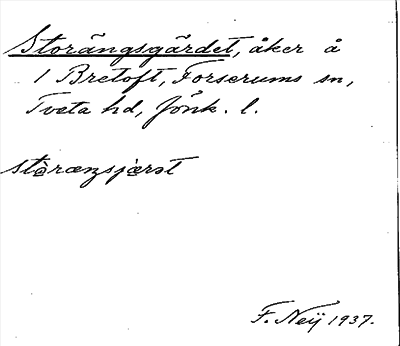 Storängsgärdet, åker å
1 Bretoft, Forserums sn,
Tveta hd, Jönk. l.
F. Neij 1937.